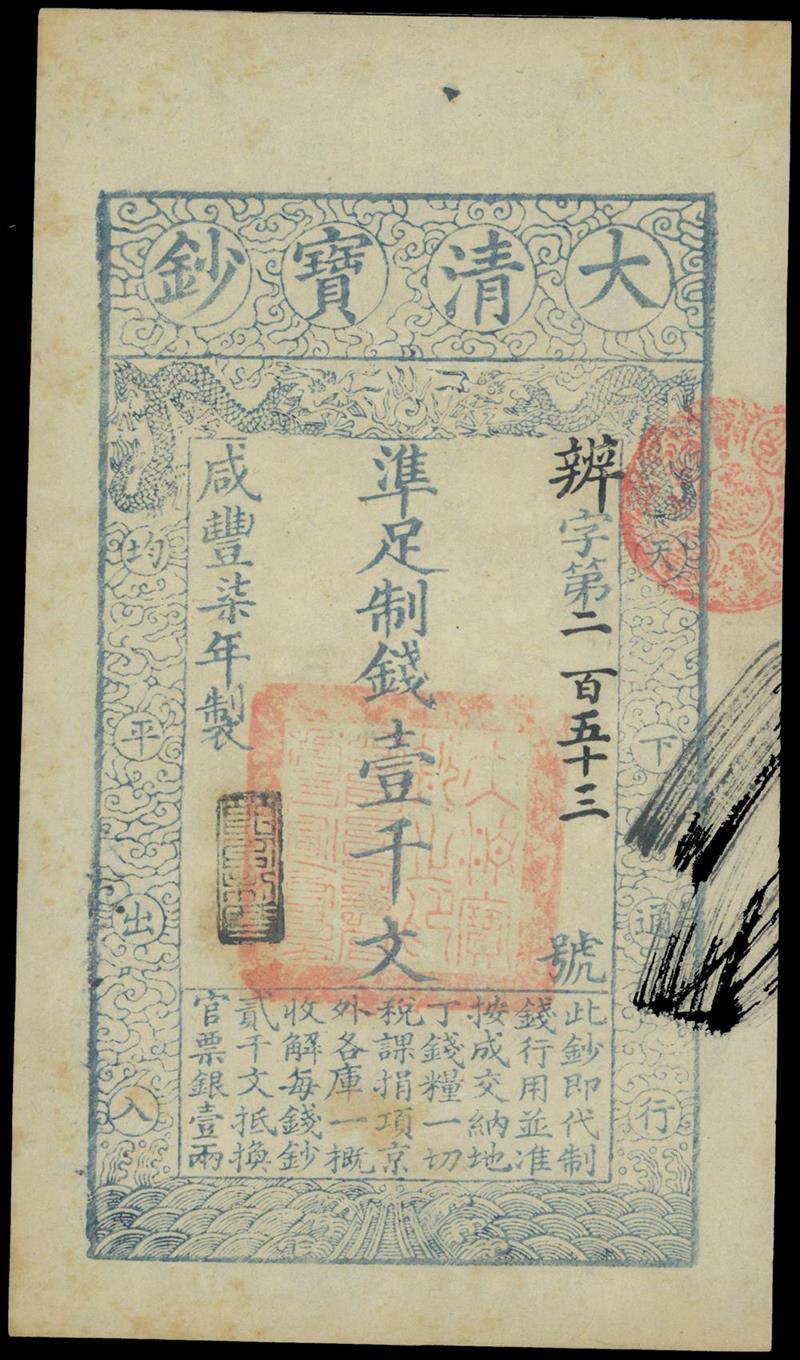 大清寶鈔
天下通行
辨字第二百五十三號
準足制錢壹千文
咸豐柒年製
均平出入
此鈔即代制
錢行用並准
按成交納地
丁錢糧一切
稅課捐項京
外各庫一概
收解每錢鈔
貳千文抵換
官票銀壹兩